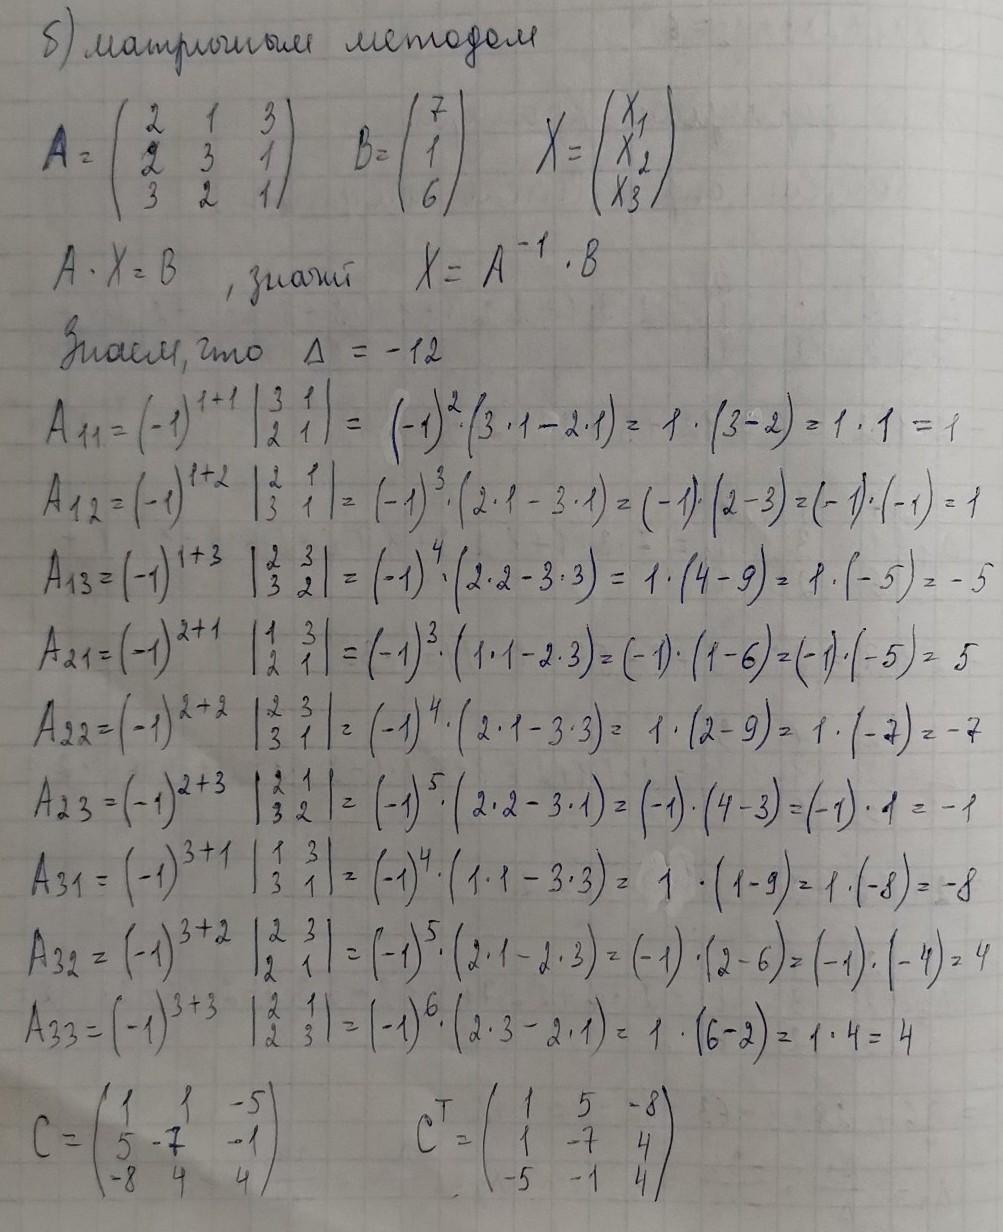 б) матричным методом
A = (2 1 3; 2 3 1; 3 2 1) B = (7; 1; 6) X = (X₁; X₂; X₃)
A · X = B , значит X = A⁻¹ · B
Знаем, что Δ = -12
A₁₁ = (-1)¹⁺¹ |3 1; 2 1| = (-1)² · (3·1 - 2·1) = 1 · (3-2) = 1 · 1 = 1
A₁₂ = (-1)¹⁺² |2 1; 3 1| = (-1)³ · (2·1 - 3·1) = (-1) · (2-3) = (-1) · (-1) = 1
A₁₃ = (-1)¹⁺³ |2 3; 3 2| = (-1)⁴ · (2·2 - 3·3) = 1 · (4-9) = 1 · (-5) = -5
A₂₁ = (-1)²⁺¹ |1 3; 2 1| = (-1)³ · (1·1 - 2·3) = (-1) · (1-6) = (-1) · (-5) = 5
A₂₂ = (-1)²⁺² |2 3; 3 1| = (-1)⁴ · (2·1 - 3·3) = 1 · (2-9) = 1 · (-7) = -7
A₂₃ = (-1)²⁺³ |2 1; 3 2| = (-1)⁵ · (2·2 - 3·1) = (-1) · (4-3) = (-1) · 1 = -1
A₃₁ = (-1)³⁺¹ |1 3; 3 1| = (-1)⁴ · (1·1 - 3·3) = 1 · (1-9) = 1 · (-8) = -8
A₃₂ = (-1)³⁺² |2 3; 2 1| = (-1)⁵ · (2·1 - 2·3) = (-1) · (2-6) = (-1) · (-4) = 4
A₃₃ = (-1)³⁺³ |2 1; 2 3| = (-1)⁶ · (2·3 - 2·1) = 1 · (6-2) = 1 · 4 = 4
C = (1 1 -5; 5 -7 -1; -8 4 4) Cᵀ = (1 5 -8; 1 -7 4; -5 -1 4)